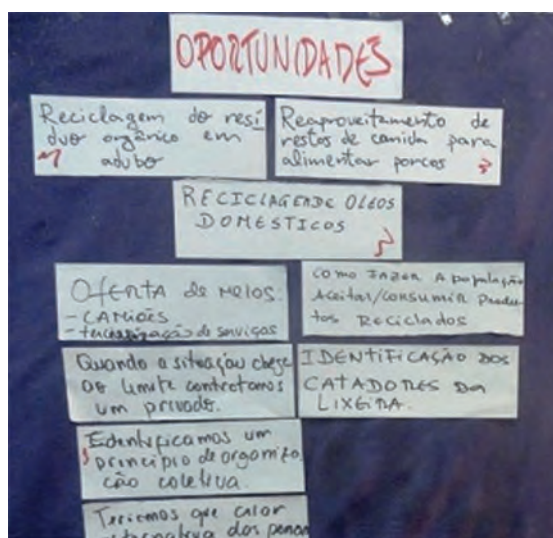 OPORTUNIDADES
Reciclagem do resí
duo orgânico em
adubo
Reaproveitamento de
restos de comida para
alimentar porcos
RECICLAGEM DE OLEOS
DOMESTICOS
OFERTA de MEIOS:
- CAMIÕES
- terceirização de serviços
COMO FAZER A população
Aceitar/consumir Produ
tos Reciclados
Quando a situação chega
ao limite contratamos
um privado.
IDENTIFICAÇÃO DOS
CATADORES DA
LIXEIRA.
Edentificamos um
principio de organiza
ção coletiva.
Teriamos que
alternativa dos